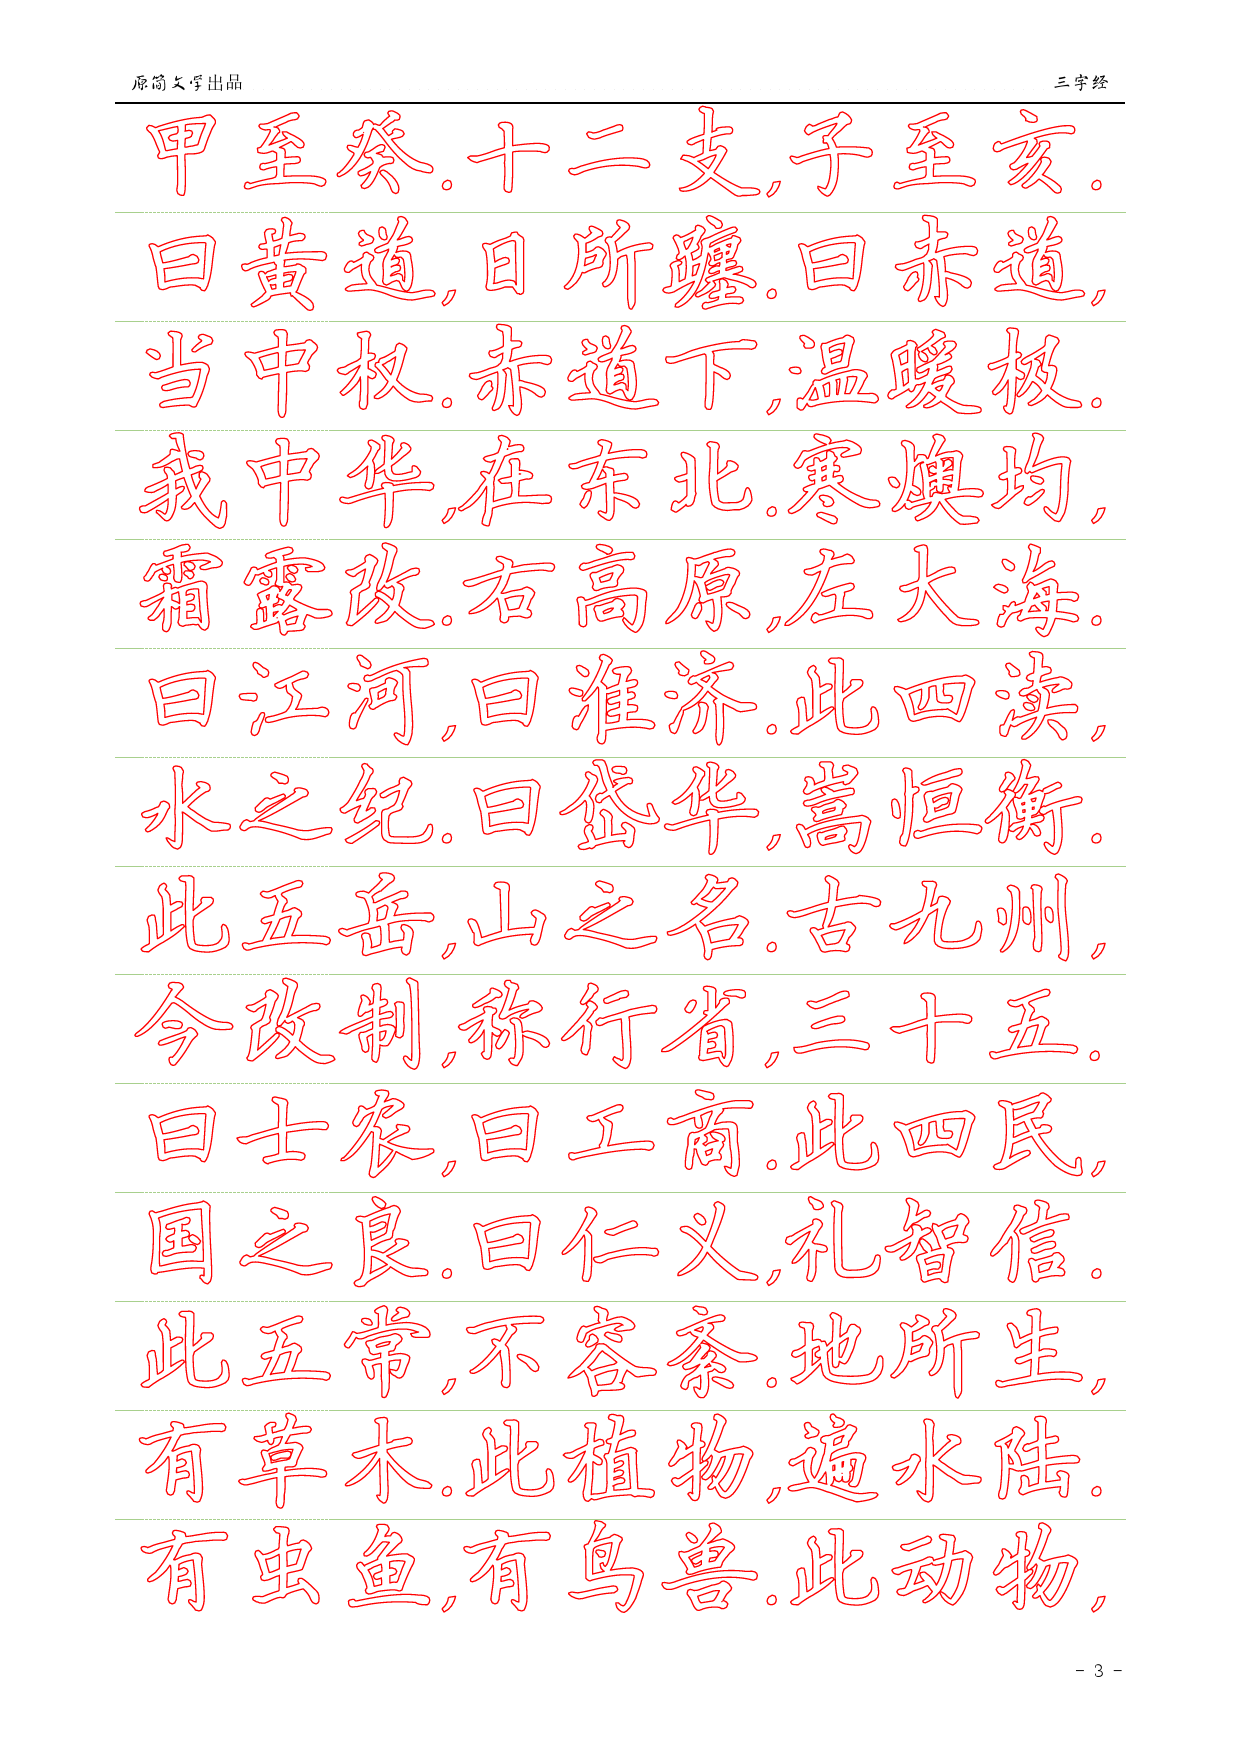 原简文学出品 三字经
甲至癸.十二支,子至亥.
曰黄道,日所躔.曰赤道,
当中权.赤道下,温暖极.
我中华,在东北.寒燠均,
霜露改.右高原,左大海.
曰江河,曰淮济.此四渎,
水之纪.曰岱华,嵩恒衡.
此五岳,山之名.古九州,
今改制,称行省,三十五.
曰士农,曰工商.此四民,
国之良.曰仁义,礼智信.
此五常,不容紊.地所生,
有草木.此植物,遍水陆.
有虫鱼,有鸟兽.此动物,
- 3 -